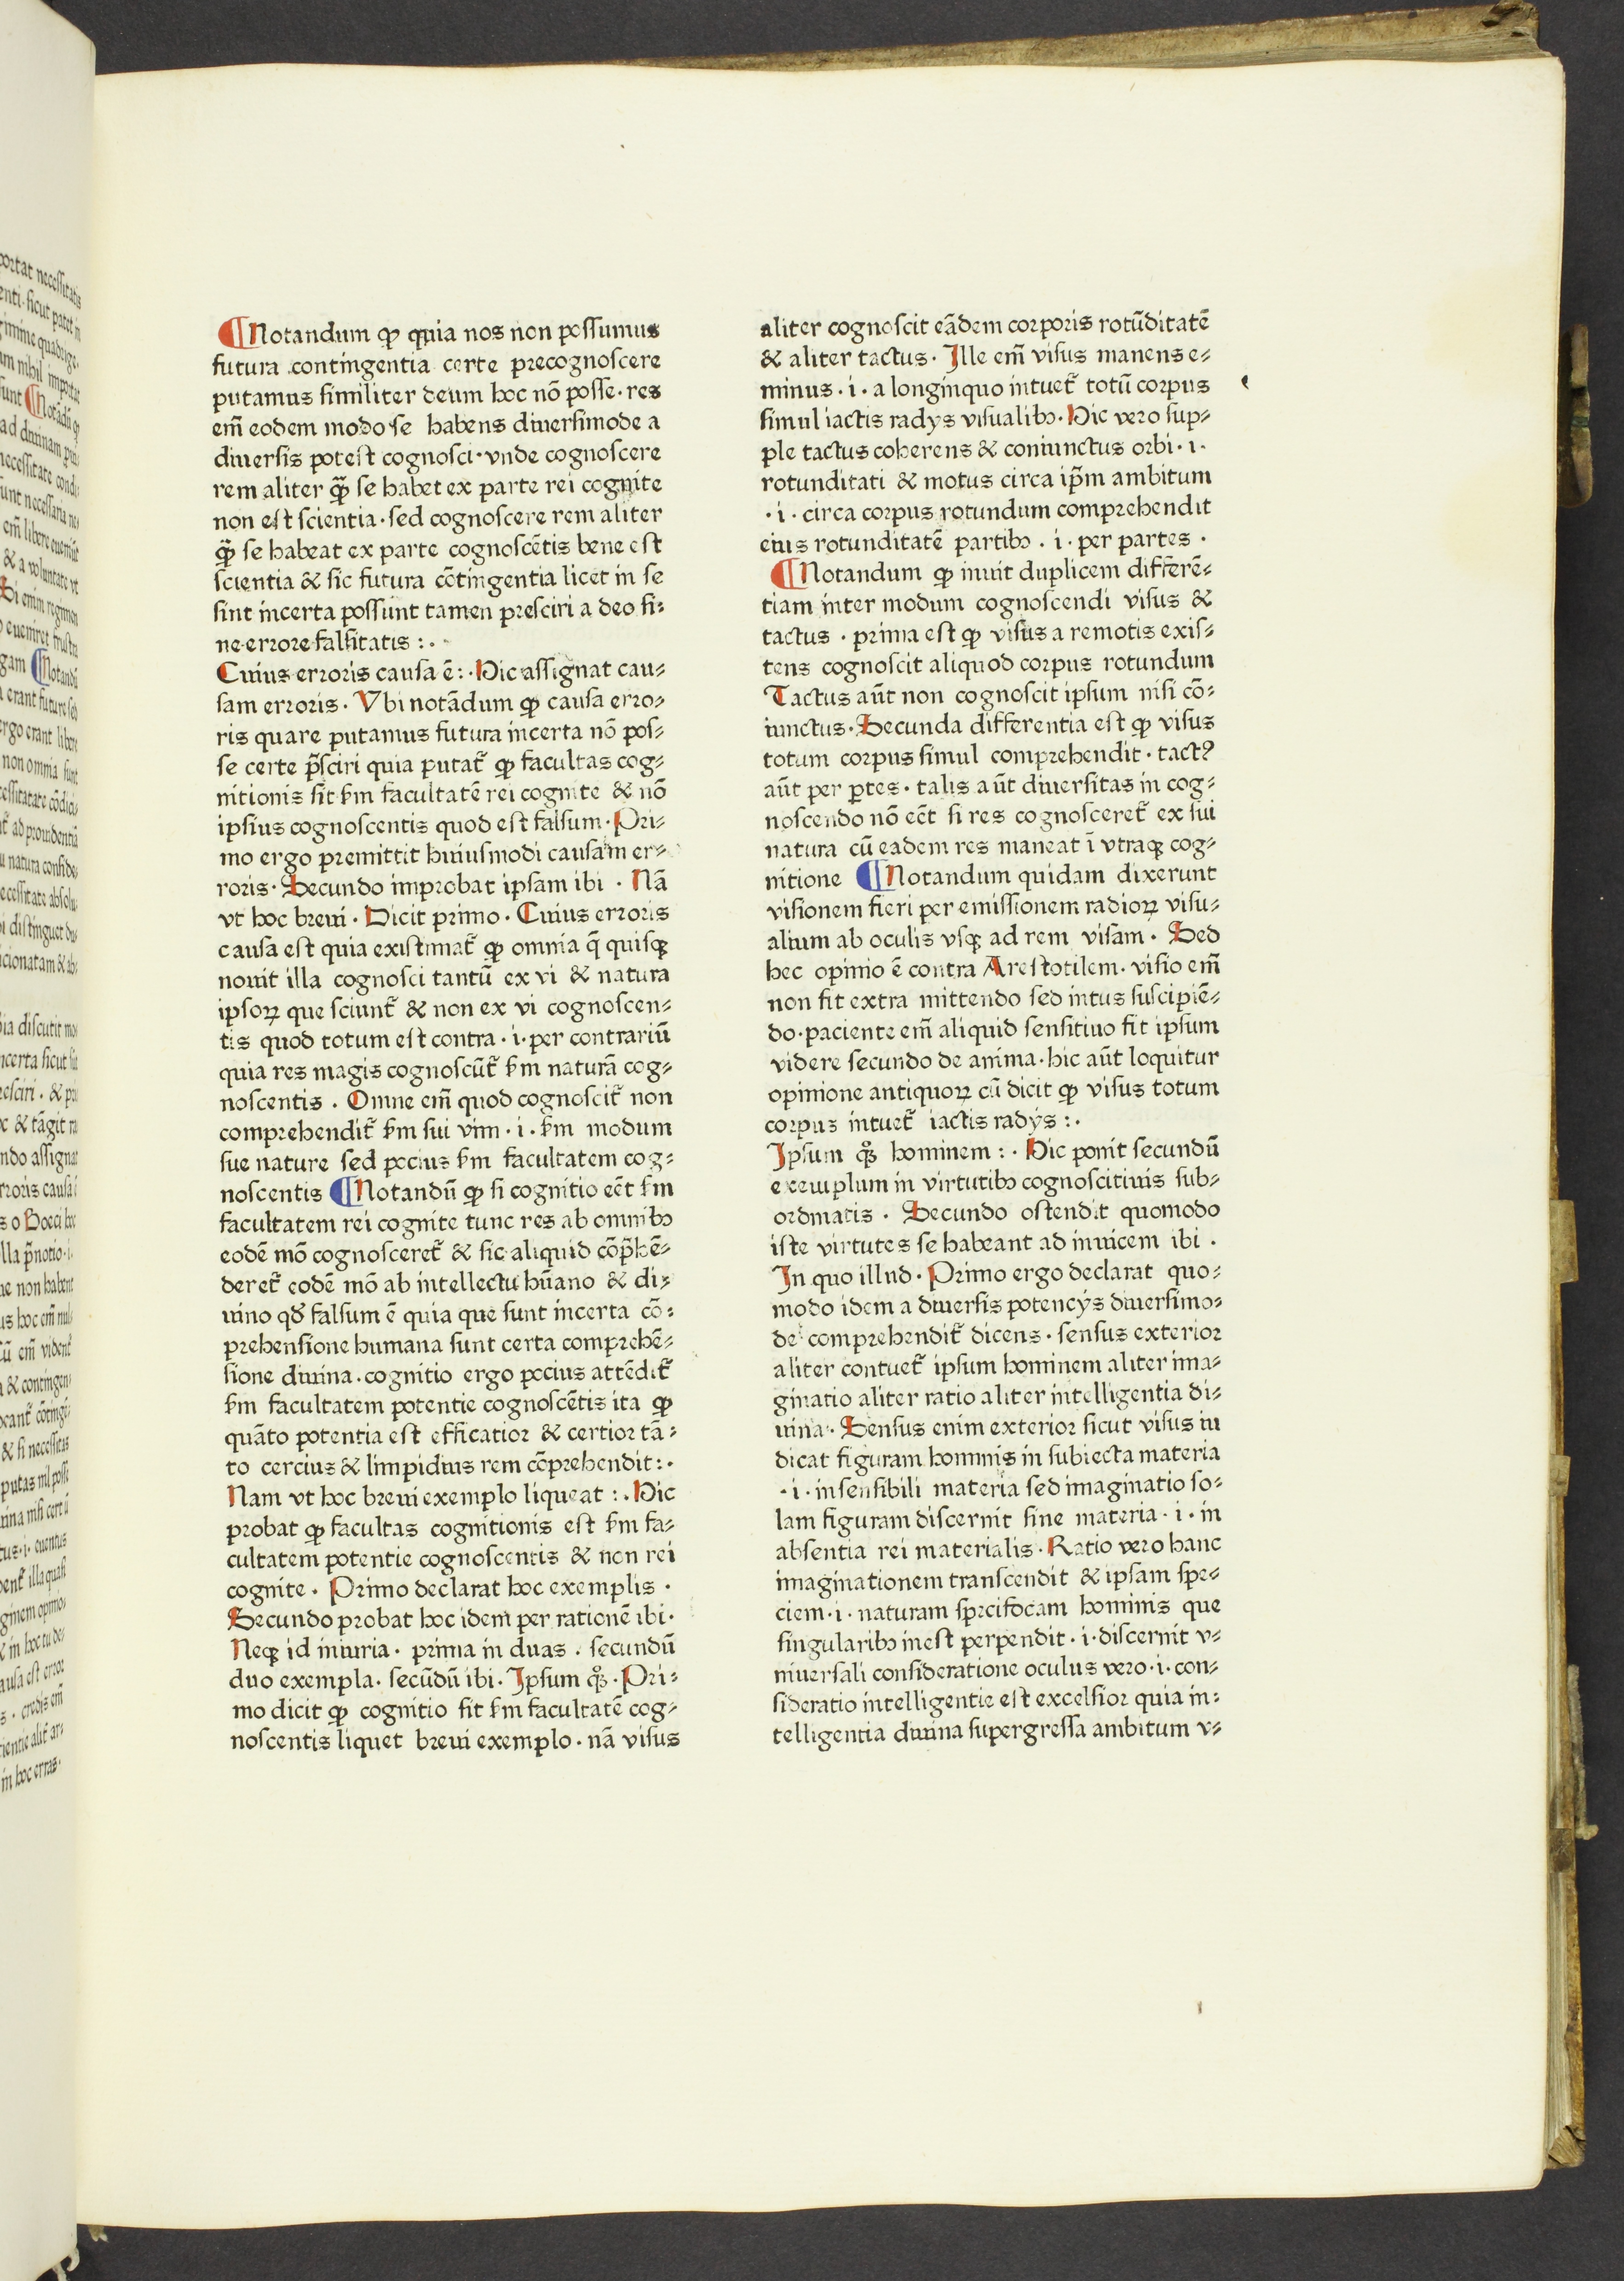 ¶Notandum ꝙ quia nos non possumus
futura contingentia certe precognoscere
putamus similiter deum hoc nō posse· res
em̄ eodem modo se habens diuersimode a
diuersis potest cognosci· vnde cognoscere
rem aliter q̄ꝫ se habet ex parte rei cognite
non est scientia· sed cognoscere rem aliter
q̄ꝫ se habeat ex parte cognoscētis bene est
scientia & sic futura cōtingentia licet in se
sint incerta possunt tamen presciri a deo si⸗
ne errore falsitatis :·
Cuius erroris causa ē :· Hic assignat cau⸗
sam erroris · Vbi notādum ꝙ causa erro⸗
ris quare putamus futura incerta nō pos⸗
se certe p̄sciri quia putat᷑ ꝙ facultas cog⸗
nitionis sit ẜm facultatē rei cognite & nō
ipsius cognoscentis quod est falsum· Pri⸗
mo ergo premittit huiusmodi causam er⸗
roris· Secundo improbat ipsam ibi · Nā
vt hoc breui · Dicit primo · Cuius erroris
causa est quia existimat᷑ ꝙ omnia q̄ quisqꝫ
nouit illa cognosci tantū ex vi & natura
ipsoꝝ que sciunt᷑ & non ex vi cognoscen⸗
tis quod totum est contra · i· per contrariū
quia res magis cognoscūt᷑ ẜm naturā cog⸗
noscentis · Omne em̄ quod cognoscit᷑ non
comprehendit᷑ ẜm sui vim · i· ẜm modum
sue nature sed pocius ẜm facultatem cog⸗
noscentis ¶Notandū ꝙ si cognitio eēt ẜm
facultatem rei cognite tunc res ab omnibꝰ
eodē mō cognosceret᷑ & sic aliquid cōp̄hē⸗
deret᷑ eodē mō ab intellectu hūano & di⸗
uino qd̓ falsum ē quia que sunt incerta cō⸗
prehensione humana sunt certa comprehē⸗
sione diuina · cognitio ergo pocius attēdit᷑
ẜm facultatem potentie cognoscētis ita ꝙ
quāto potentia est efficatior & certior tā⸗
to cercius & limpidius rem cōprehendit :·
Nam vt hoc breui exemplo liqueat :· Hic
probat ꝙ facultas cognitionis est ẜm fa⸗
cultatem potentie cognoscentis & non rei
cognite · Primo declarat hoc exemplis ·
Secundo probat hoc idem per rationē ibi·
Neqꝫ id iniuria · prima in duas · secundū
duo exempla · secūdū ibi · Ipsum qͦꝫ · Pri⸗
mo dicit ꝙ cognitio sit ẜm facultatē cog⸗
noscentis liquet breui exemplo · nā visus
aliter cognoscit eādem corporis rotūditatē
& aliter tactus · Ille em̄ visus manens e⸗
minus · i · a longinquo intuet᷑ totū corpus
simul iactis radys visualibꝰ· Hic vero sup⸗
ple tactus coherens & coniunctus orbi · i·
rotunditati & motus circa ip̄m ambitum
· i · circa corpus rotundum comprehendit
eius rotunditatē partibꝰ · i · per partes ·
¶Notandum ꝙ inuit duplicem differē⸗
tiam inter modum cognoscendi visus &
tactus · prima est ꝙ visus a remotis exis⸗
tens cognoscit aliquod corpus rotundum
Tactus aūt non cognoscit ipsum nisi cō⸗
iunctus· Secunda differentia est ꝙ visus
totum corpus simul comprehendit · tactꝰ
aūt per ꝑtes · talis aūt diuersitas in cog⸗
noscendo nō eēt si res cognosceret᷑ ex sui
natura cū eadem res maneat ī vtraqꝫ cog⸗
nitione ¶Notandum quidam dixerunt
visionem fieri per emissionem radioꝝ visu⸗
alium ab oculis vsqꝫ ad rem visam · Sed
hec opinio ē contra Arestotilem · visio em̄
non fit extra mittendo sed intus suscipiē⸗
do· paciente em̄ aliquid sensitiuo fit ipsum
videre secundo de anima · hic aūt loquitur
opinione antiquoꝝ cū dicit ꝙ visus totum
corpus intuet᷑ iactis radys :·
Ipsum qͦꝫ hominem :· Hic ponit secundū
exemplum in virtutibꝰ cognoscitiuis sub⸗
ordinatis · Secundo ostendit quomodo
iste virtutes se habeant ad inuicem ibi ·
In quo illud · Primo ergo declarat quo⸗
modo idem a diuersis potencys diuersimo⸗
de comprehendit᷑ dicens · sensus exterior
aliter contuet᷑ ipsum hominem aliter ima⸗
ginatio aliter ratio aliter intelligentia di⸗
uina · Sensus enim exterior sicut visus iu
dicat figuram hominis in subiecta materia
· i · in sensibili materia sed imaginatio so⸗
lam figuram discernit sine materia · i · in
absentia rei materialis · Ratio vero hanc
imaginationem transcendit & ipsam spe⸗
ciem · i · naturam specificam hominis que
singularibꝰ inest perpendit · i · discernit v⸗
niuersali consideratione oculus vero · i · con⸗
sideratio intelligentie est excelsior quia in⸗
telligentia diuina supergressa ambitum v⸗